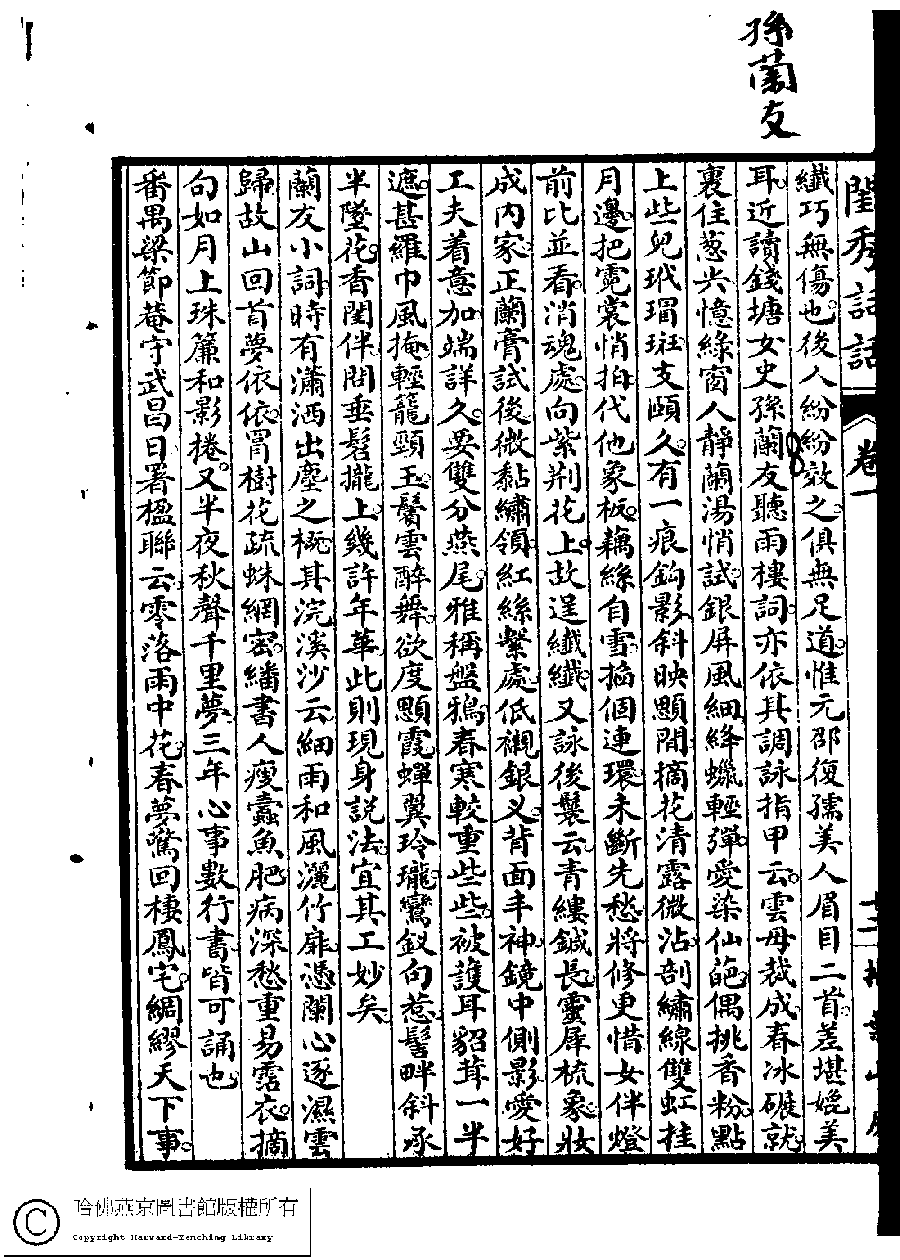 孫蘭友
閨秀詞話
卷一
纖巧無傷也後人紛紛效之俱無足道惟元邵復孺美人眉目二首差堪媲美
耳近讀錢塘女史孫蘭友聽雨樓詞亦依其調詠指甲云雲母裁成春冰碾就
裹住葱尖憶綠窗人靜蘭湯悄試銀屏風細絳蠟輕彈愛染仙葩偶挑香粉點
上些兒玳瑁斑支頤久有一痕鈎影斜映顋間摘花清露微沾剖繡線雙虹挂
月邊把霓裳悄拍代他象板藕絲自雪搯個連環未斷先愁將修更惜女伴燈
前比並看消魂處向紫荆花上故逞纖纖又詠後鬢云青縷鍼長靈犀梳象妝
成内家正蘭膏試後微黏繡領紅絲繫處低襯銀叉背面丰神鏡中側影愛好
工夫着意加端詳久要雙分燕尾雅稱盤鴉春寒較重些些被護耳貂茸一半
遮甚羅巾風掩輕籠頸玉鬢雲醉軃欲度顋霞蟬翼玲瓏鸞釵句惹髻畔斜承
半墜花香閨伴問垂髫攏上幾許年華此則現身説法宜其工妙矣
蘭友小詞時有瀟洒出塵之概其浣溪沙云細雨和風灑竹扉憑闌心逐濕雲
歸故山回首夢依依冐樹花疏蛛網密繙書人瘦蠹魚肥病深愁重易霑衣摘
句如月上珠簾和影捲又半夜秋聲千里夢三年心事數行書皆可誦也
番禺梁節菴守武昌日署楹聯云零落雨中花春夢驚回棲鳳宅綢繆天下事
哈佛燕京圖書館版權所有
Copyright Harvard-Yenching Library